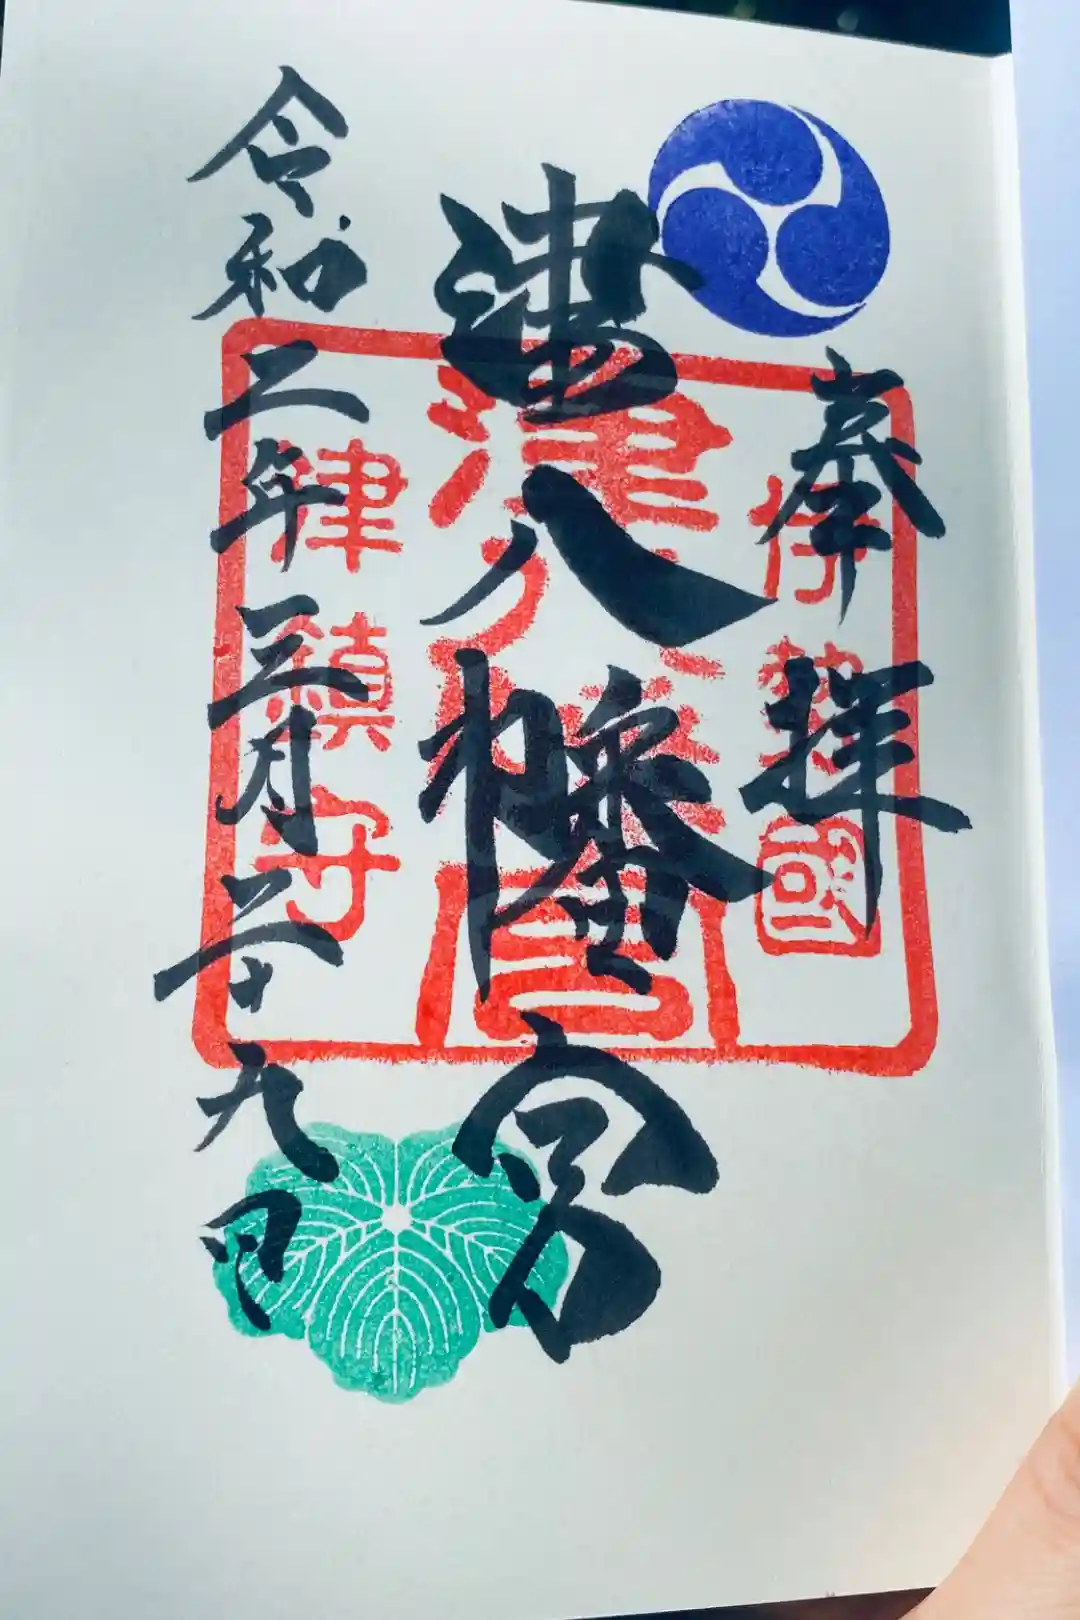 奉拝
伊勢國
津八幡宮
津八幡宮
津鎮守
令和二年三月二十九日